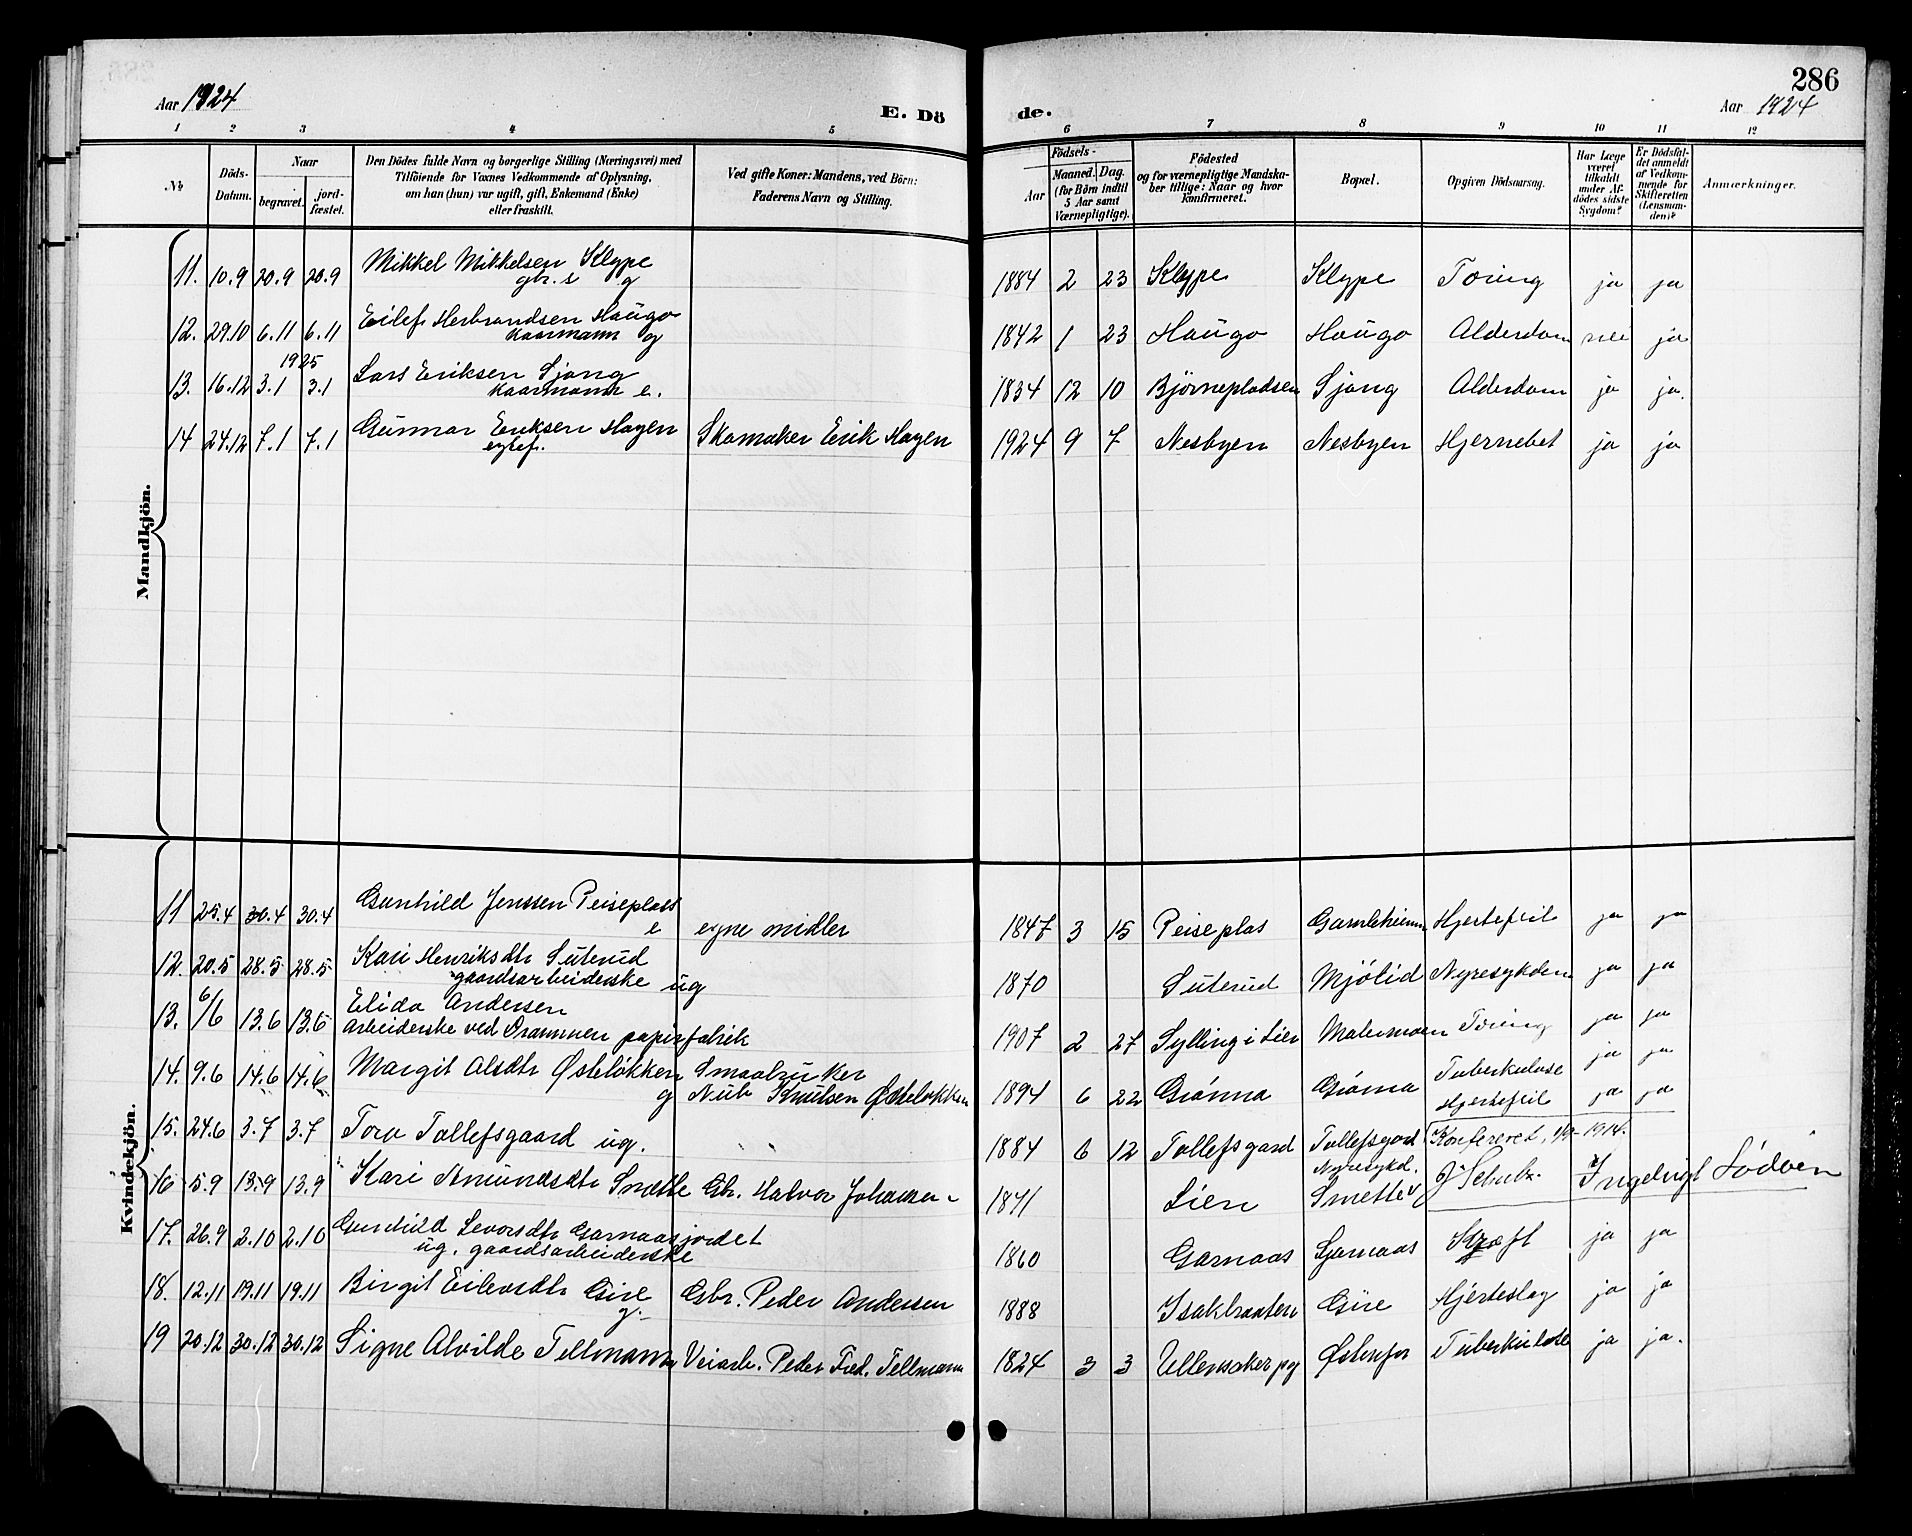 286
Aar 1924
E. Dö
de.
Aar 1924
1 2 3 4 5 6 7 8 9 10 11 12
No
Döds-Datum.
Naar
begravet.
jord-fæstet.
Den Dödes fulde Navn og borgerlige Stilling (Næringsvei) med
Tilföiende for Voxnes Vedkommende af Oplysning,
om han (hun) var ugift, gift, Enkemand (Enke)
eller fraskilt.
Ved gifte Koner: Mandens, ved Börn:
Faderens Navn og Stilling.
Födsels-
Aar
Maaned. Dag.
(for Börn indtil
5 Aar samt
Værnepligtige).
Födested
og for værnepligtige Mandska-
ber tillige: Naar og hvor
konfirmeret.
Bopæl.
Opgiven Dödsaarsag.
Har Læge
været
tilkaldt
under Af-
dödes sidste
Sygdom?
Er Dödsfal-
det anmeldt
af Vedkom-
mende for
Skifteretten
(Lensman-
den)?
Anmærkninger.
Mandkjön.
11. 10.9 20.9 20.9 Mikkel Mikkelsen Klype 1884 2 23 Klype Klype Tæring ja ja
gbr. s g
12. 29.10 6.11 6.11 Eilef Herbrandsen Haugo 1842 1 23 Haugo Haugo Alderdom nei ja
Kaarmann g
1925
13. 16.12 3.1 3.1 Lars Eriksen Sjong 1834 12 10 Bjørnepladsen Sjong Alderdom ja ja.
Kaarmann e.
14 24.12 7.1 7.1 Gunnar Eriksen Hagen Skomaker Erik Hagen 1924 9 7 Nesbyen Nesbyen Hjernebet ja ja
egtef.
Kvindekjön.
11 25.4 30.4 30.4 Gunhild Jenssen Peiseplass egne midler 1847 3 15 Peiseplas Gamleheimen Hjertefeil ja ja
e
12. 20.5 28.5 28.5 Kari Henriksdtr Suterud 1870 Suterud Mjölid Nyresykdom ja ja
gaardsarbeiderske ug
13. 6/6 13.6 13.6 Elida Andersen 1907 2 27 Sylling i Lier Malermoen Tæring ja ja
Arbeiderske ved Drammen papirfabrik
14. 9.6 14.6 14.6 Margit Olsdtr Østeløkken Smaabruker 1894 6 22 Grønna Grønna Tuberkulose ja ja
g Nub Knutsen Østeløkken
15. 24.6 3.7 3.7 Tora Tollefsgaard ug. 1884 6 12 Tollefsgard Tollefsgard Hjertefeil ja ja
Konfereret, 1/9-1914.
16 5.9 13.9 13.9 Kari Amundsdtr Smette Gb. Halvor Johannes- 1841 Lien Smette Nyresykd. J Schulz. Ingebrigt Lødøen
17. 26.9 2.10 2.10 Gunhild Sevorsdtr Garnaasjordet 1860 Garnaas Garnaas Kræft ja ja
ug. gaardsarbeiderske
18. 12.11 19.11 19.11 Birgit Eilevsdtr Gire Gbr. Peder Andersen 1888 Isakbraaten Gire Hjerteslag ja ja
g.
19 20.12 30.12 30.12 Signe Alvilde Tellmann Veiarb. Peder Fred. Tellmann 1824 3 3 Ullensaker pg Østenfor Tuberkulose ja ja.